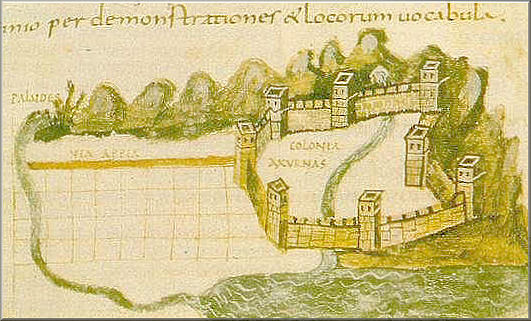 per demonstrationes & locorum uocabula.
PALVDES
VIA APPIA
COLONIA
AXVRNAS